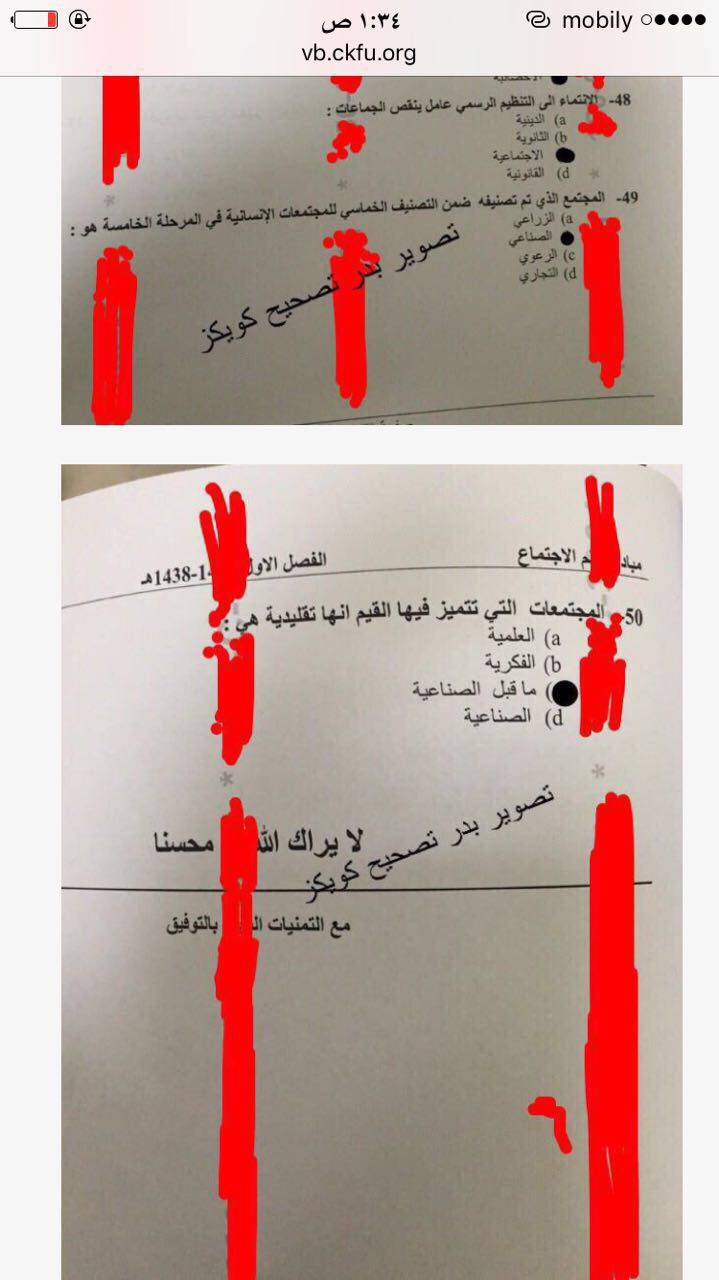 mobily
١:٣٤ ص
vb.ckfu.org
48- الانتماء الى التنظيم الرسمي عامل ينقص الجماعات :
a) الدينية
b) الثانوية
الاجتماعية
d) القانونية
49- المجتمع الذي تم تصنيفه ضمن التصنيف الخماسي للمجتمعات الإنسانية في المرحلة الخامسة هو :
a) الزراعي
الصناعي
c) الرعوي
d) التجاري
تصوير بدر تصحيح كويكز
الاجتماع
الفصل الاول
1438-1 هـ
50- المجتمعات التي تتميز فيها القيم انها تقليدية هي :
a) العلمية
b) الفكرية
) ما قبل الصناعية
d) الصناعية
تصوير بدر تصحيح كويكز
لا يراك الله محسنا
مع التمنيات بالتوفيق